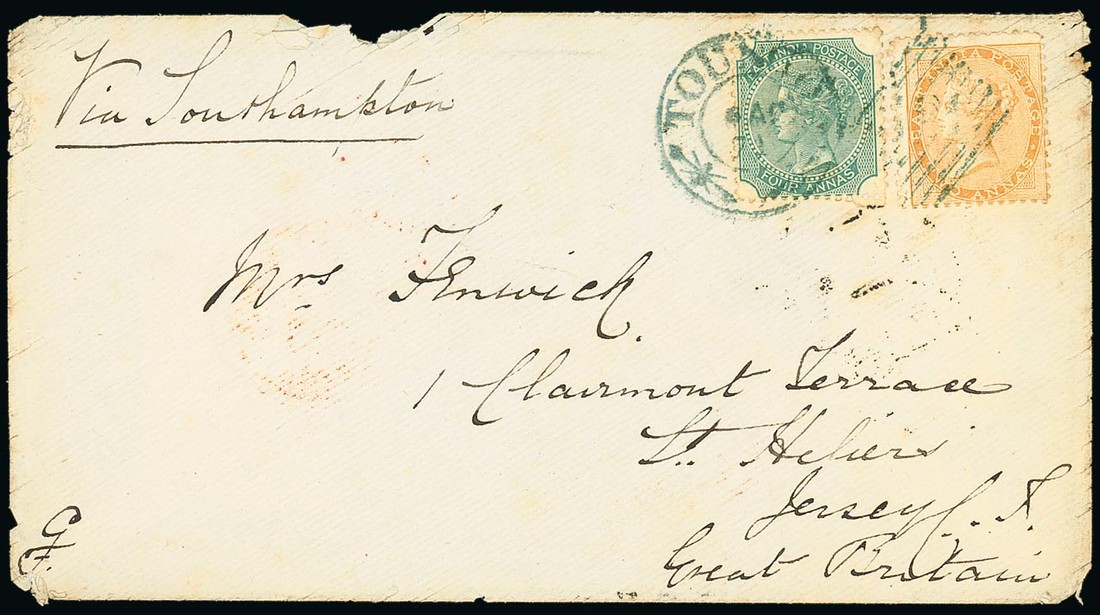 Via Southampton
TOU
EAST INDIA POSTAGE
FOUR ANNAS
EAST INDIA POSTAGE
TWO ANNAS
Mrs Fenwick
1 Clairmont Terrace
St. Heliers
Jersey C. I.
Great Britain